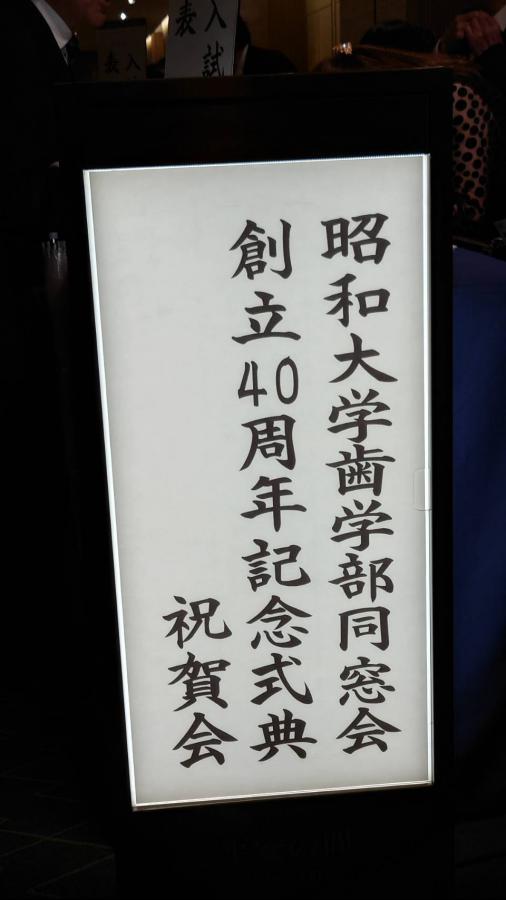 昭和大学歯学部同窓会
創立40周年記念式典
祝賀会
入試
表
入
表